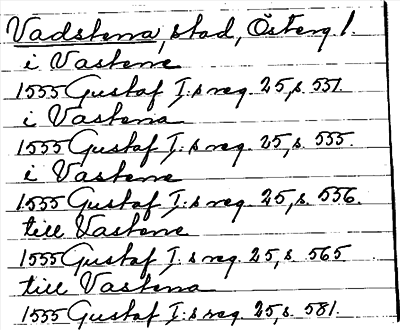 Vadstena, stad, Österg. l.
i Vastene
1555 Gustaf I:s reg. 25, s. 551.
i Vastena
1555 Gustaf I:s reg. 25, s. 555.
i Vastene
1555 Gustaf I:s reg. 25, s. 556.
till Vastene
1555 Gustaf I:s reg. 25, s. 565
till Vastena
1555 Gustaf I:s reg. 25, s. 581.